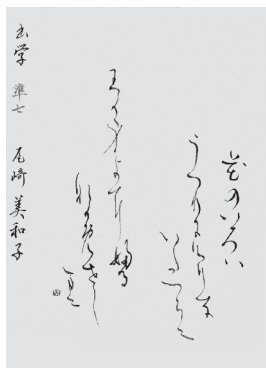 花のいろは
うつりにけりな
いたつらに
わか身よにふる
なかめせし
まに
準七 尾﨑美和子